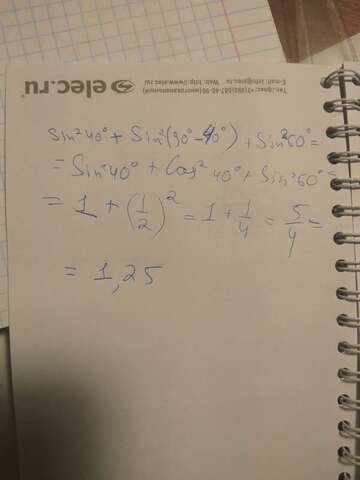 elec.ru
Тел./факс: +7(495)587-40-90 (многоканальный)
E-mail: info@elec.ru Web: http://www.elec.ru/
Sin²40° + Sin²(90°-40°) + Sin²60° =
= Sin²40° + Cos²40° + Sin²60° =
= 1 + (1/2)² = 1 + 1/4 = 5/4 =
= 1,25